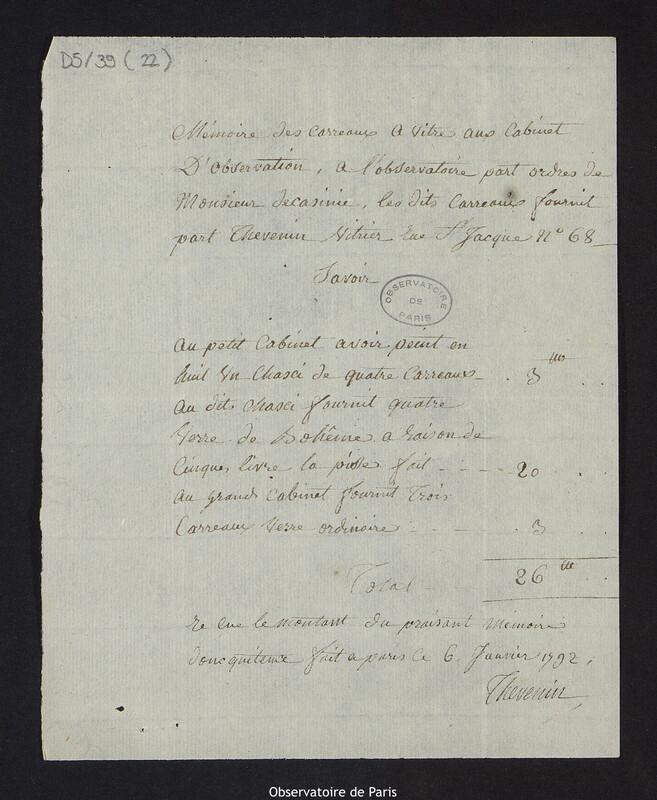 D5/39 (22)
Mémoire des carreaux a vitre aux Cabinet
D'observation, a l'observatoire part ordres de
Monsieur decasinie, les dits Carreaux fournit
part Thevenin Vitrier Rue St Jacque No 68
Savoir
OBSERVATOIRE
DE
PARIS
au petit Cabinet avoir peint en
huil un Chasci de quatre Carreaux 3 ₶
au dit Chasci fournit quatre
Verre de Bohême a raison de
Cinque livre la piesse fait 20
au grand Cabinet fournit trois
Carreaux Verre ordinaire 3
Total 26 ₶
re cue le montant du praisant Mémoire
doncquitence fait a paris ce 6 Janvier 1792,
Thevenin
Observatoire de Paris